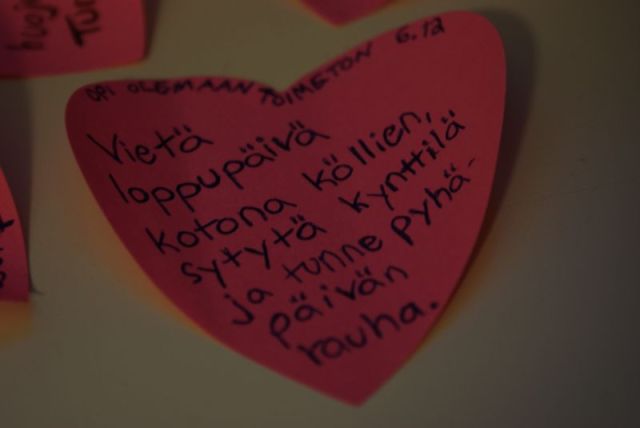 huoj
Tun
OPI OLEMAAN TOIMETON 6.12
Vietä
loppupäivä
kotona köllien,
sytytä kynttilä
ja tunne pyhä-
päivän
rauha.